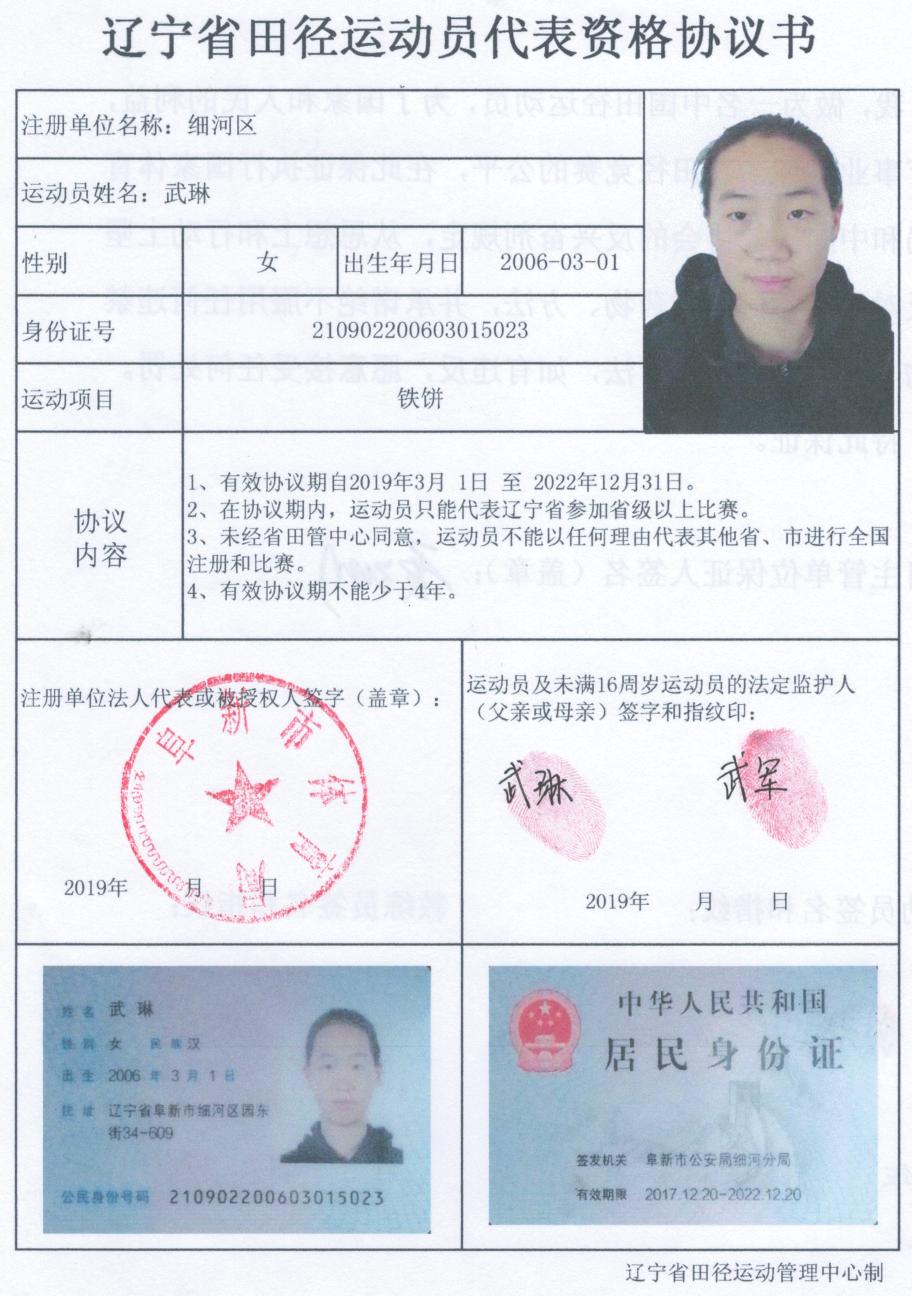 辽宁省田径运动员代表资格协议书
注册单位名称：细河区
运动员姓名：武琳
性别 女 出生年月日 2006-03-01
身份证号 210902200603015023
运动项目 铁饼
协议
内容
1、有效协议期自2019年3月 1日 至 2022年12月31日。
2、在协议期内，运动员只能代表辽宁省参加省级以上比赛。
3、未经省田管中心同意，运动员不能以任何理由代表其他省、市进行全国
注册和比赛。
4、有效协议期不能少于4年。
注册单位法人代表或被授权人签字（盖章）：
阜新市体育局
2019年 月 日
运动员及未满16周岁运动员的法定监护人
（父亲或母亲）签字和指纹印：
武琳 武军
2019年 月 日
姓名 武琳
性别 女 民族 汉
出生 2006 年 3 月 1 日
住址 辽宁省阜新市细河区园东
街34-609
公民身份号码 210902200603015023
中华人民共和国
居民身份证
签发机关 阜新市公安局细河分局
有效期限 2017.12.20-2022.12.20
辽宁省田径运动管理中心制